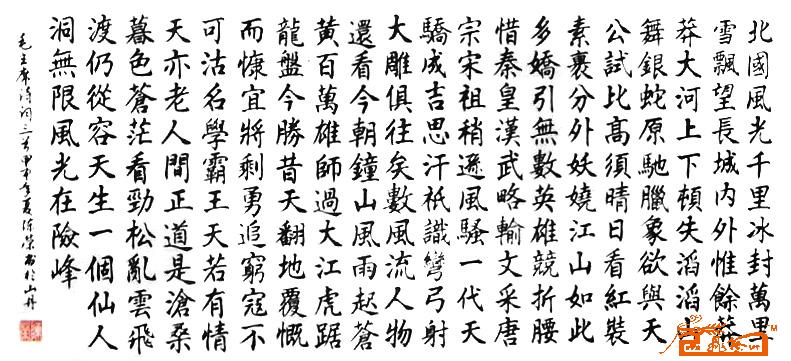 北國風光千里冰封萬里
雪飄望長城內外惟餘莽
莽大河上下頓失滔滔山
舞銀蛇原馳臘象欲與天
公試比高須晴日看紅裝
素裹分外妖嬈江山如此
多嬌引無數英雄競折腰
惜秦皇漢武略輸文采唐
宗宋祖稍遜風騷一代天
驕成吉思汗祇識彎弓射
大雕俱往矣數風流人物
還看今朝鐘山風雨起蒼
黃百萬雄師過大江虎踞
龍盤今勝昔天翻地覆慨
而慷宜將剩勇追窮寇不
可沽名學霸王天若有情
天亦老人間正道是滄桑
暮色蒼茫看勁松亂雲飛
渡仍從容天生一個仙人
洞無限風光在險峰
毛主席詩詞三首甲申年夏陳榮書於山丹